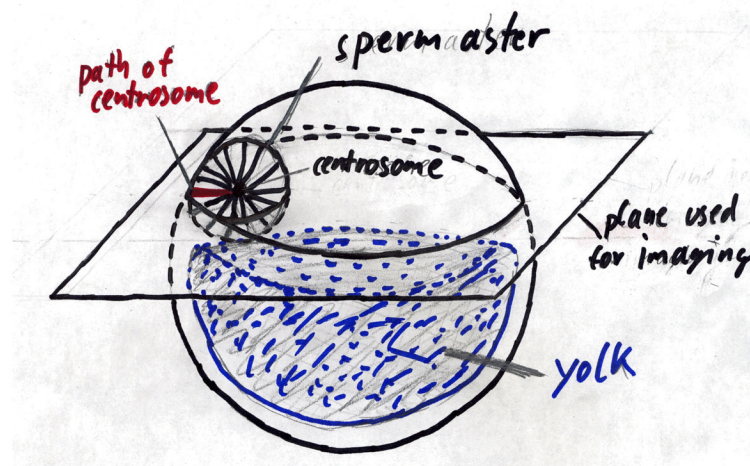 sperm aster
path of
centrosome
centrosome
plane used
for imaging
yolk